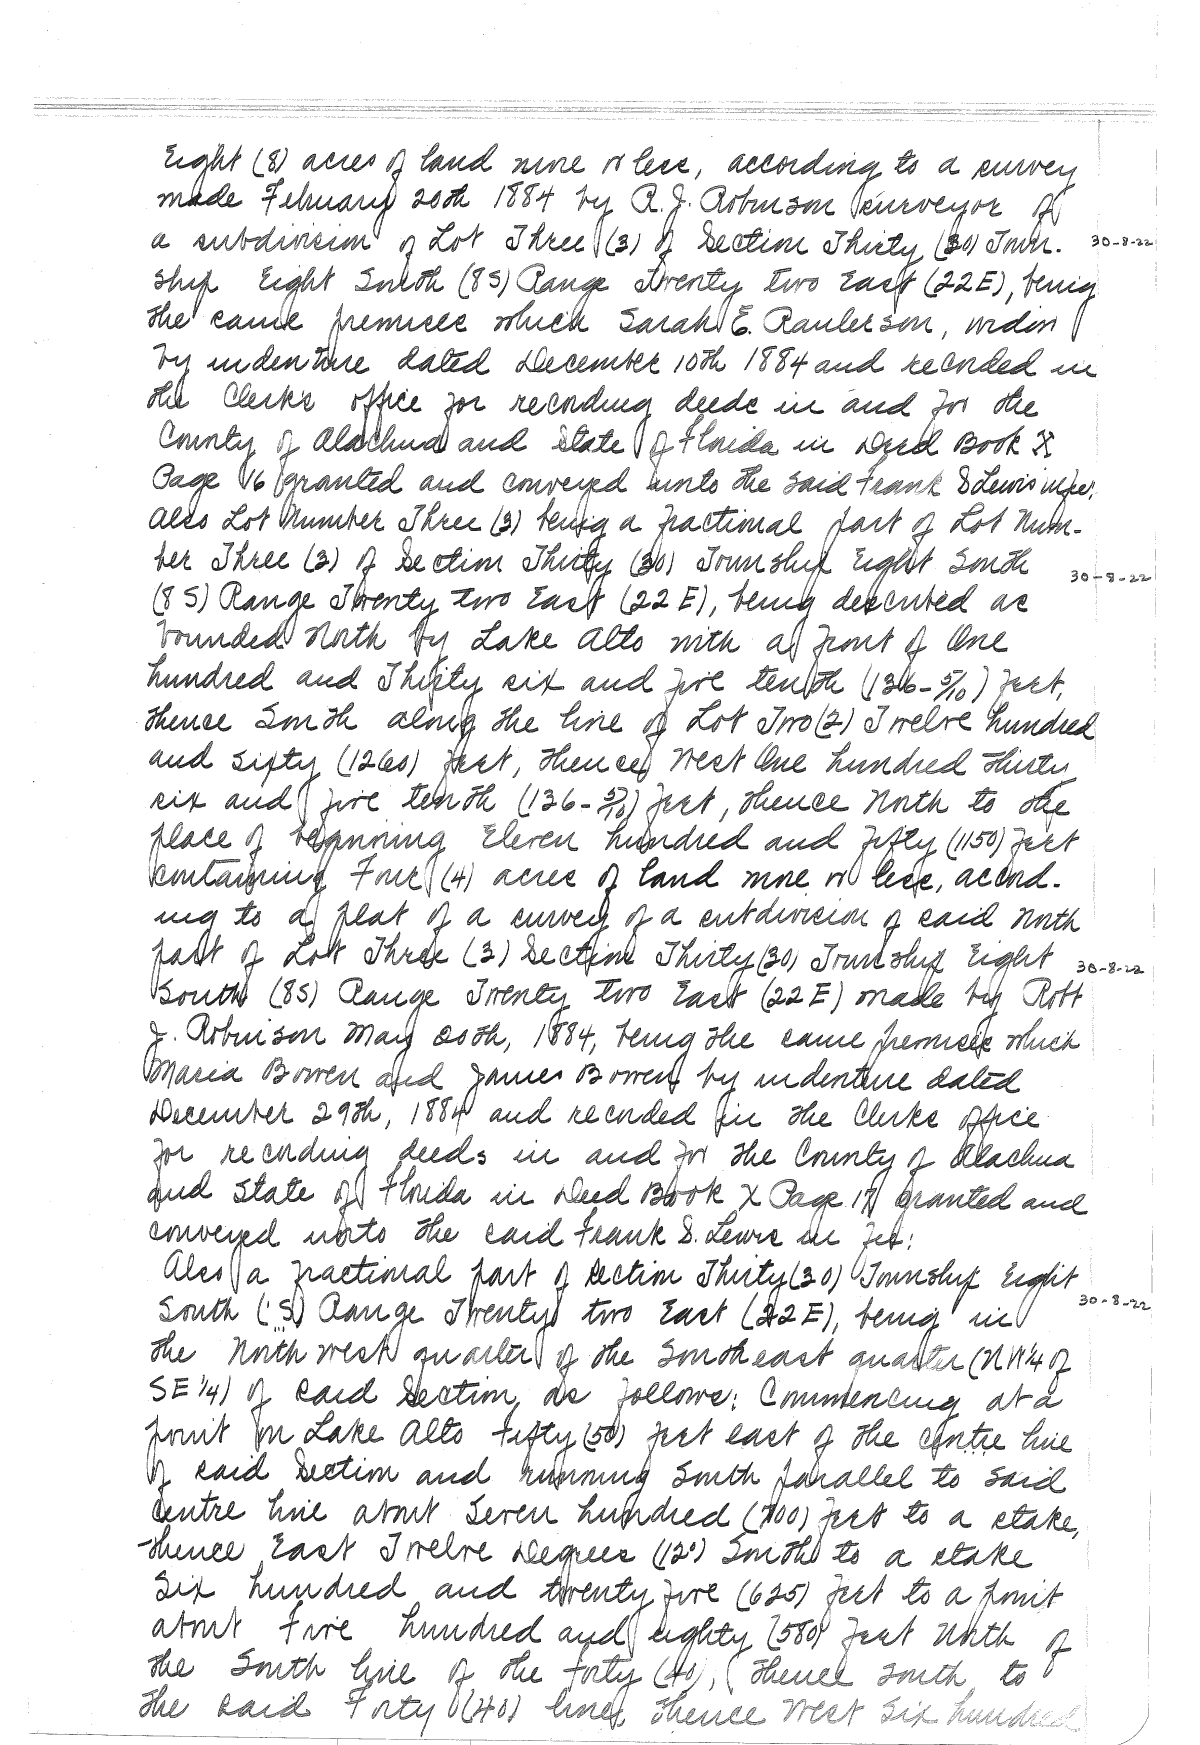 Eight (8) acres of land more or less, according to a survey
made February 20th 1884 by R. J. Robinson surveyor of
a subdivision of Lot Three (3) of Section Thirty (30) Town-
30-8-22
ship Eight South (8S) Range Twenty two East (22E), being
the same premises which Sarah E. Raulerson, widow
by indenture dated December 10th 1884 and recorded in
the Clerks office for recording deeds in and for the
County of Alachua and State of Florida in Deed Book X
Page 16 granted and conveyed unto the said Frank S Lewis in fee,
Also Lot Number Three (3) being a fractional part of Lot Num-
ber Three (3) of Section Thirty (30) Township Eight South
30-8-22
(8S) Range Twenty two East (22E), being described as
bounded North by Lake Alto with a front of One
hundred and Thirty six and five tenth (136-5/10) feet,
thence South along the line of Lot Two (2) Twelve hundred
and sixty (1260) feet, thence West One hundred thirty
six and five tenth (136-5/10) feet, thence North to the
place of beginning Eleven hundred and fifty (1150) feet
containing Four (4) acres of land more or less, accord-
ing to a plat of a survey of a subdivision of said North
part of Lot Three (3) Section Thirty (30) Township Eight
30-8-22
South (8S) Range Twenty two East (22E) made by Robt
J. Robinson May 20th, 1884, being the same premises which
Maria Bowen and James Bowen by indenture dated
December 29th, 1884 and recorded in the Clerks office
for recording deeds in and for the County of Alachua
and State of Florida in Deed Book X Page 17 granted and
conveyed unto the said Frank S. Lewis in fee:
Also a fractional part of Section Thirty (30) Township Eight
30-8-22
South (8S) Range Twenty two East (22E), being in
the North west quarter of the Southeast quarter (NW1/4 of
SE1/4) of said Section, as follows: Commencing at a
point on Lake Alto Fifty (50) feet east of the centre line
of said Section and running South parallel to said
centre line about Seven hundred (700) feet to a stake,
thence East Twelve Degrees (12°) South to a stake
Six hundred and twenty five (625) feet to a point
about Five hundred and eighty (580) feet North of
the South line of the forty (40), thence South to
the said Forty (40) line, thence West Six hundred